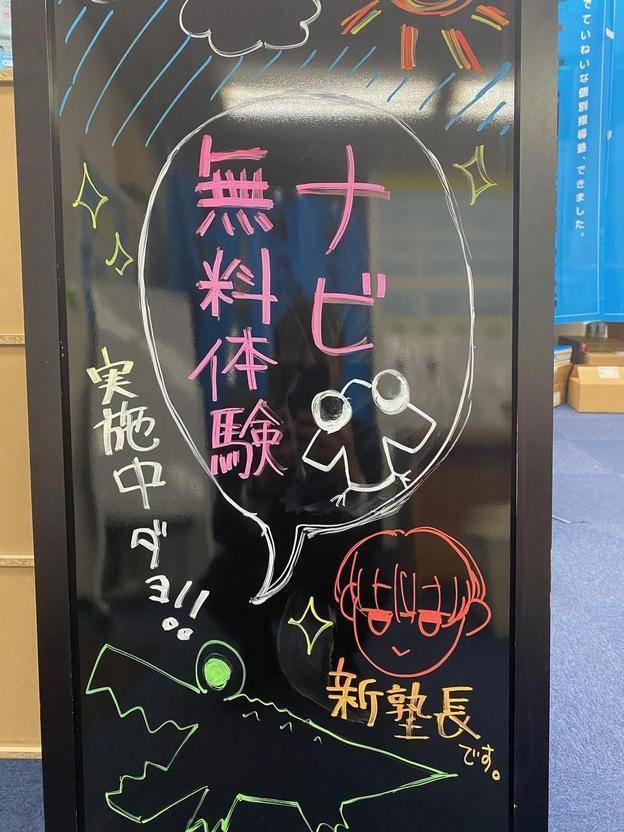 ナビ
無料体験
実施中ダヨ!!
新塾長
です。
でていねいな個別指導塾、できました。